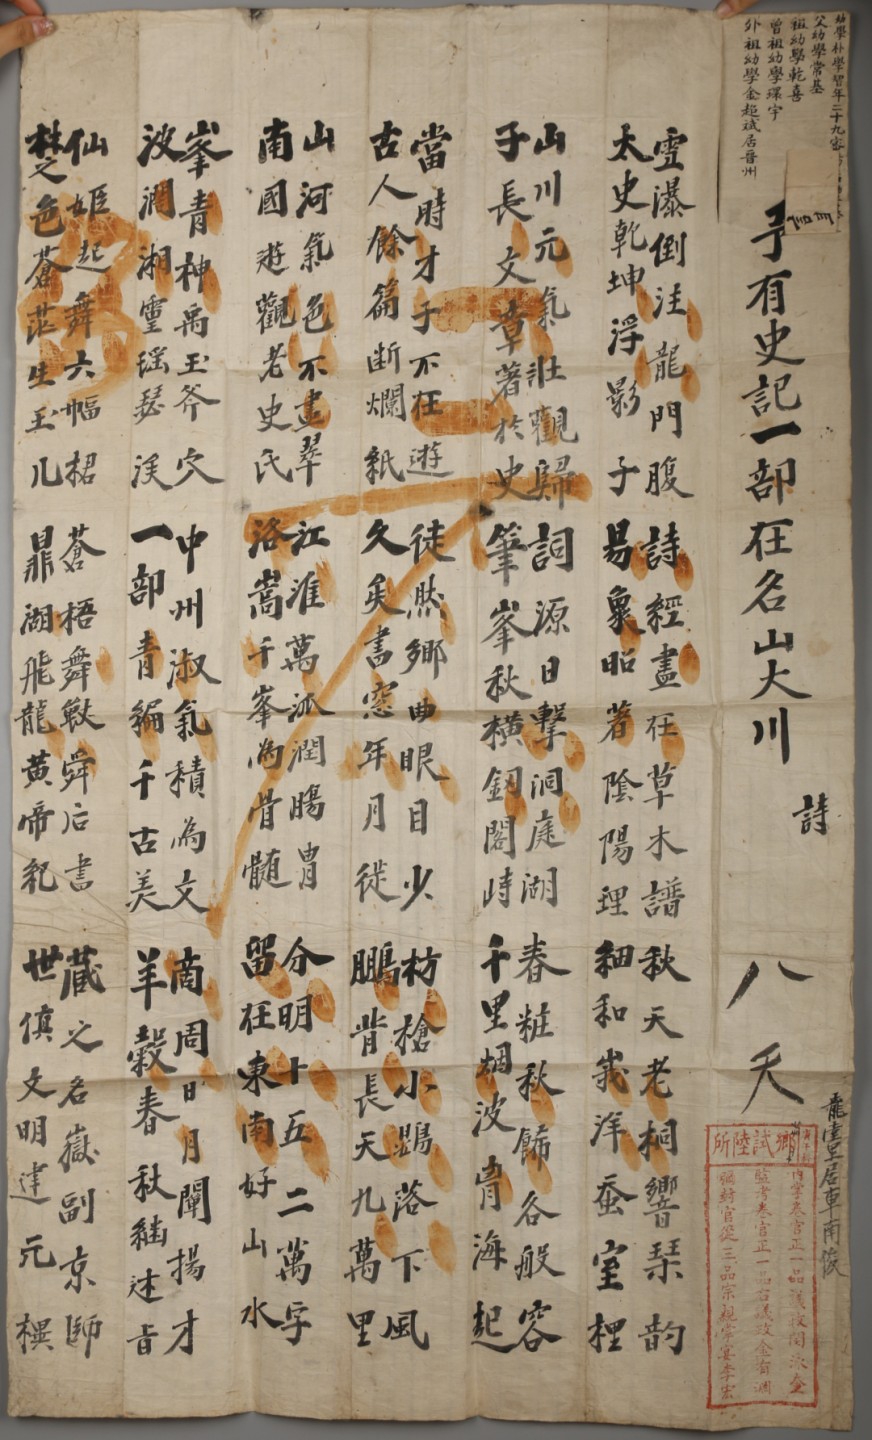 幼學朴學習年二十九
父幼學常基
祖幼學乾喜
曾祖幼學環宇
外祖幼學金超斌居晉州
有史記一部在名山大川
詩
八 天
龍堂居車南俊
鄉試陸所
内掌卷官正一品議政閔泳奎
監考卷官正一品右議政金有淵
彌封官從三品宗親
雪瀑倒注龍門腹 詩經盡在草木譜 秋天老桐響琹韵
太史乾坤浮影子 易象昭著陰陽理 細和峩洋蚕室裡
山川元氣壯觀歸 詞源日擊洞庭湖 春粧秋餙各般容
子長文章著於史 筆峯秋橫釼閣峙 千里烟波胷海起
當時才子不在遊 徒然鄉曲眼目少 枋槍小鷃落下風
古人餘篇断爛紙 久矣書窓年月徙 鵬背長天九萬里
山河氣色不盡翠 江淮萬派潤膓胃 分明十五二萬字
南國遊觀老史氏 洛嵩千峯為骨髓 留在東南好山水
峯青神禹玉斧穴 中州淑氣積為文 商周日月闡揚才
波濶湘靈瑤瑟涘 一部青編千古美 羊穀春秋継述旨
仙姬起舞六幅裙 蒼梧舞獸舜后書 蔵之名嶽副京師
楚色蒼茫生玉几 鼎湖飛龍黄帝紀 世傎文明建元撰